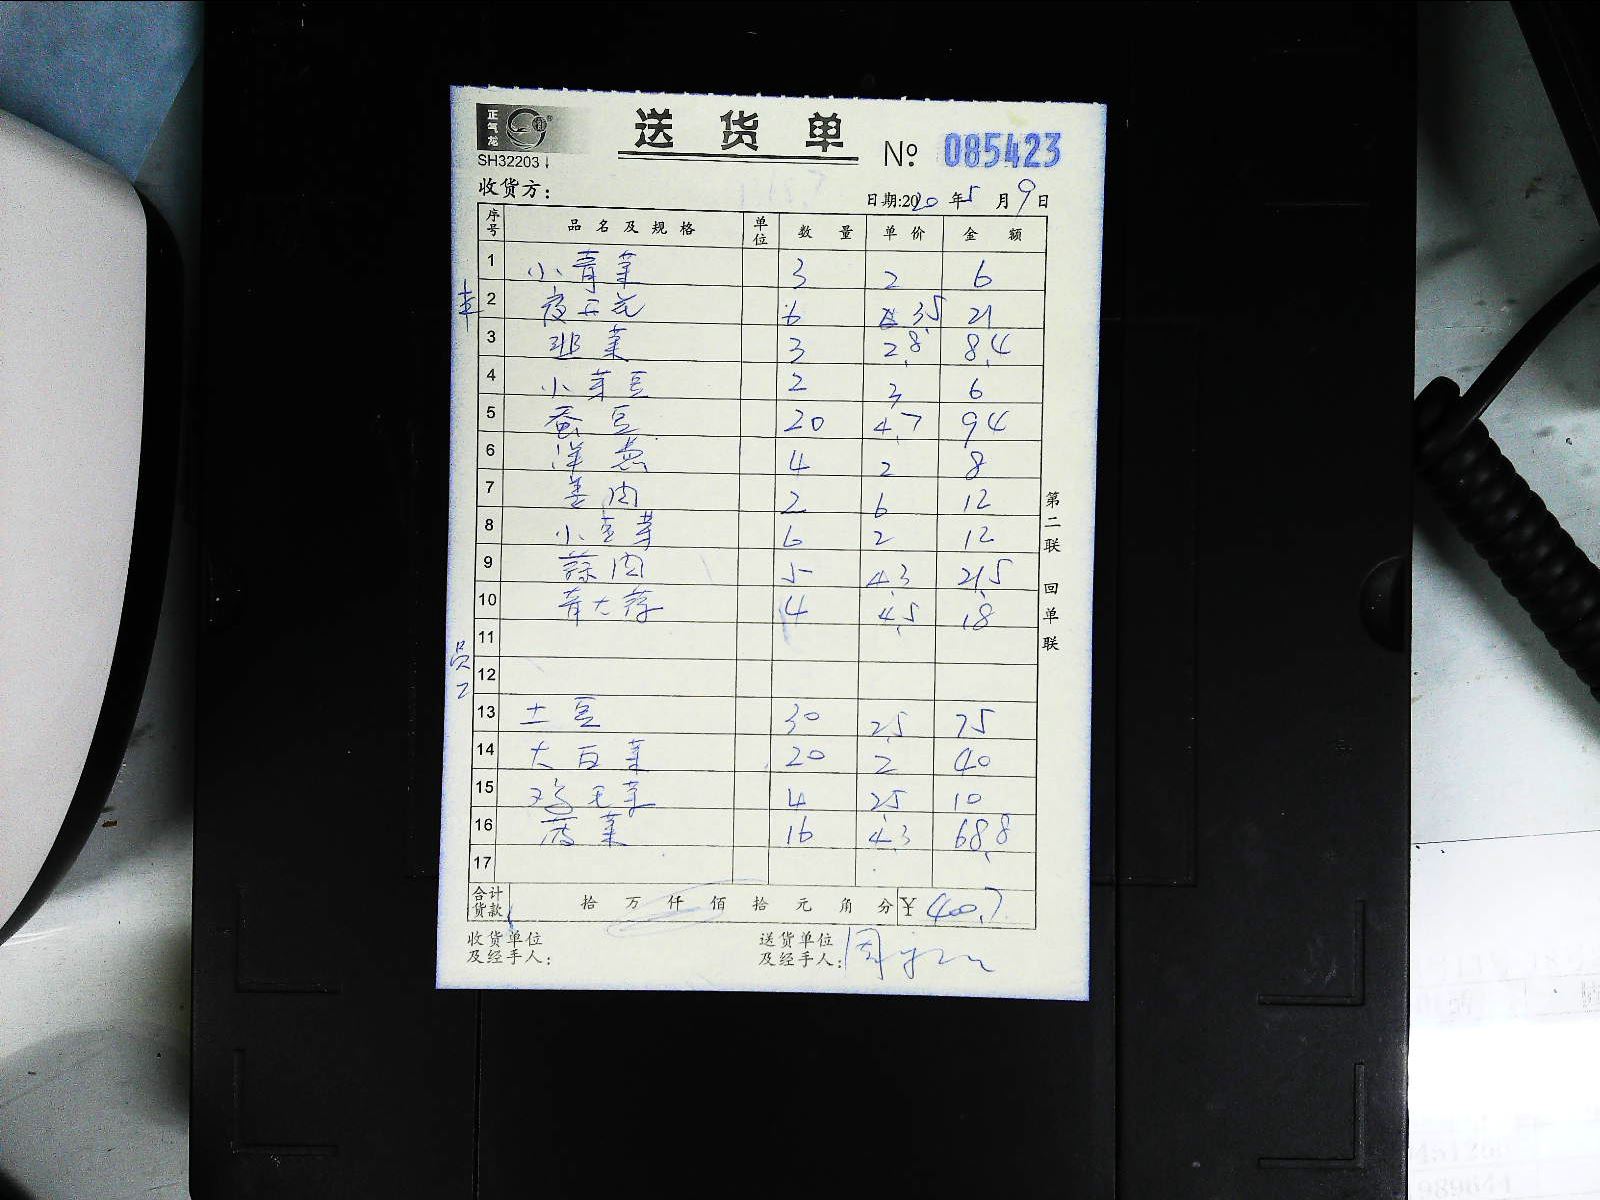 正气龙
送货单
№ 085423
SH32203
收货方: 日期:2020年5月9日
序号 品名及规格 单位 数量 单价 金额
1 小青菜 3 2 6
2 夜开花 6 3.5 21
3 韭菜 3 2.8 8.4
4 小芽豆 2 3 6
5 蚕豆 20 4.7 94
6 洋葱 4 2 8
7 姜肉 2 6 12
8 小豆芽 6 2 12
9 蒜肉 5 4.3 21.5
10 青大蒜 4 4.5 18
11
12
员工
13 土豆 30 2.5 75
14 大白菜 20 2 40
15 鸡毛菜 4 2.5 10
16 菜 16 4.3 68.8
17
合计货款 拾万仟佰拾元角分 ¥ 400.7
收货单位及经手人: 送货单位及经手人: 周
第二联 回单联